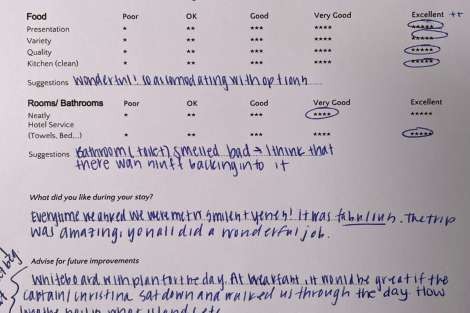 Food Poor OK Good Very Good Excellent ++
Presentation * ** *** **** *****
Variety * ** *** **** *****
Quality * ** *** **** *****
Kitchen (clean) * ** *** **** *****
Suggestions Wonderful! Soaccomodating with options
Rooms/ Bathrooms Poor OK Good Very Good Excellent
Neatly * ** *** **** *****
Hotel Service
(Towels, Bed...) * ** *** **** *****
Suggestions Bathroom (toilet) smelled bad → I think that
there was stuff backing into it
What did you like during your stay?
Everytime we asked we were met w/ smiles + yeses! It was fabulous. The trip
was amazing, you all did a wonderful job.
Advise for future improvements
Whiteboard with plan for the day. At breakfast, it would be great if the
captain/christina sat down and walked us through the day. How